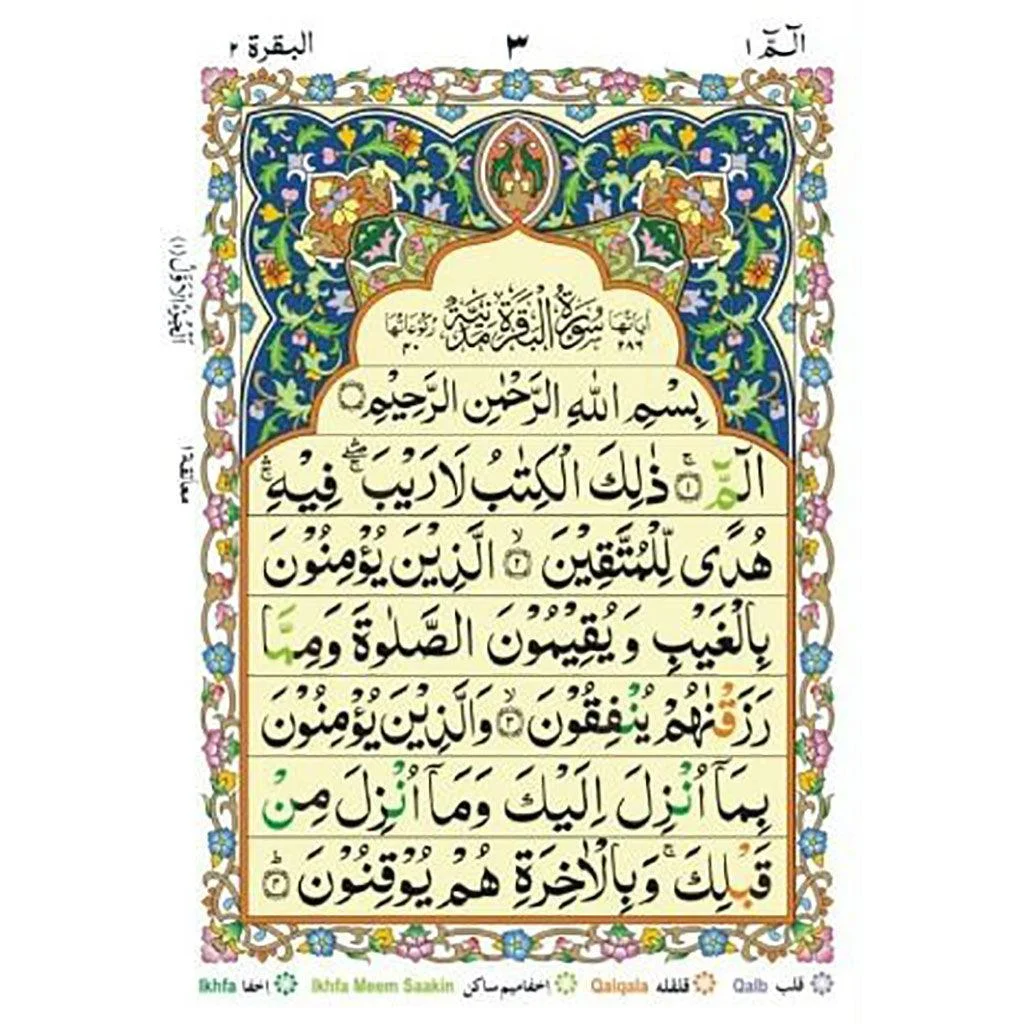 الٓمّٓ ١
٣
البقرة ٢
اَلْجُزْءُ الْاَوَّلُ (١)
معانقة ١
اٰيَاتُهَا ٢٨٦ سُوْرَةُ الْبَقَرَةِ مَدَنِيَّةٌ رُكُوْعَاتُهَا ٤٠
بِسْمِ اللّٰهِ الرَّحْمٰنِ الرَّحِيْمِ
الٓمّٓ ۚ ١ ذٰلِكَ الْكِتٰبُ لَا رَيْبَ ۛۖ ۚ فِيْهِ ۛۚ
هُدًى لِّلْمُتَّقِيْنَ ۙ ٢ الَّذِيْنَ يُؤْمِنُوْنَ
بِالْغَيْبِ وَيُقِيْمُوْنَ الصَّلٰوةَ وَمِمَّا
رَزَقْنٰهُمْ يُنْفِقُوْنَ ۙ ٣ وَالَّذِيْنَ يُؤْمِنُوْنَ
بِمَآ اُنْزِلَ اِلَيْكَ وَمَآ اُنْزِلَ مِنْ
قَبْلِكَ ۚ وَبِالْاٰخِرَةِ هُمْ يُوْقِنُوْنَ ؕ ٤
قلب Qalb قلقله Qalqala اخفامیم ساکن Ikhfa Meem Saakin اخفا Ikhfa